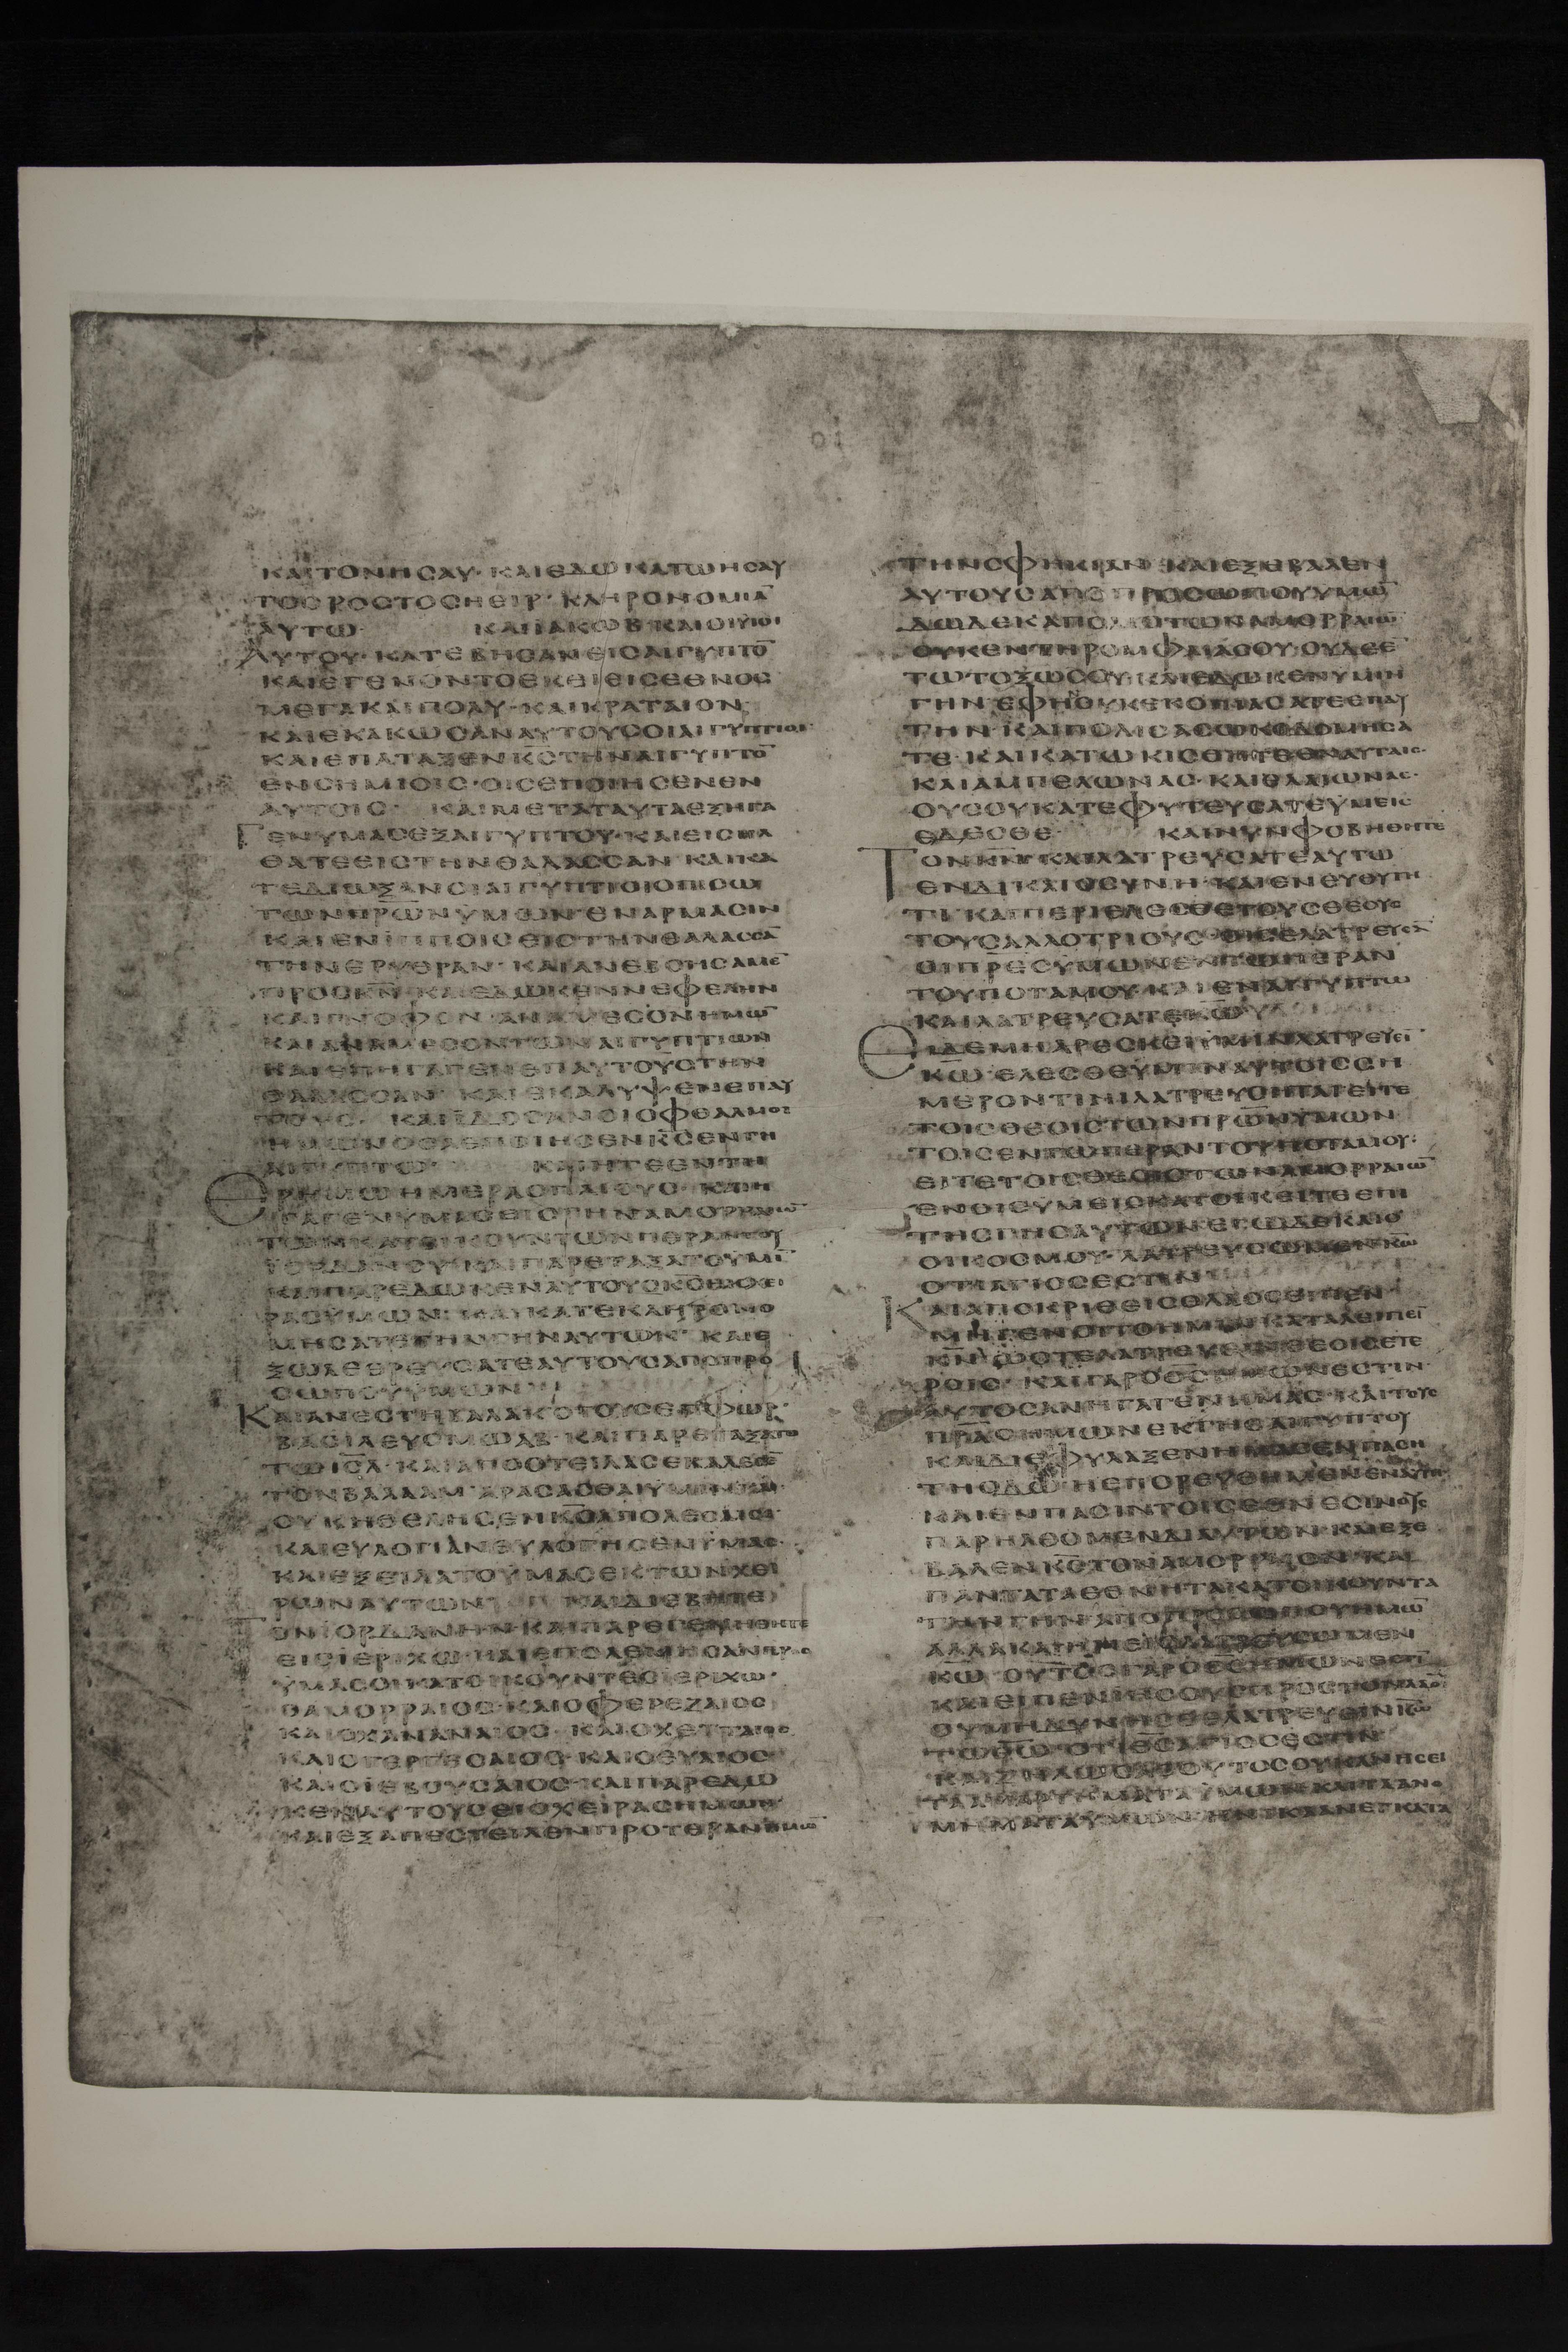 ΚΑΙΤΟΝΗϹΑΥ· ΚΑΙΕΔΩΚΑΤΩΗϹΑΥ
ΤΟΟΡΟϹΤΟϹΗΕΙΡ· ΚΛΗΡΟΝΟΜΙΑ̅
ΑΥΤΩ ΚΑΙΙΑΚΩΒΚΑΙΟΙΥΙΟΙ
ΑΥΤΟΥ· ΚΑΤΕΒΗϹΑΝΕΙϹΑΙΓΥΠΤΟ̅
ΚΑΙΕΓΕΝΟΝΤΟΕΚΕΙΕΙϹΕΘΝΟϹ
ΜΕΓΑΚΑΙΠΟΛΥ· ΚΑΙΚΡΑΤΑΙΟΝ·
ΚΑΙΕΚΑΚΩϹΑΝΑΥΤΟΥϹΟΙΑΙΓΥΠΤΙΟΙ·
ΚΑΙΕΠΑΤΑΞΕΝΚ̅Ϲ̅ΤΗΝΑΙΓΥΠΤΟ̅
ΕΝϹΗΜΙΟΙϹ· ΟΙϹΕΠΟΙΗϹΕΝΕΝ
ΑΥΤΟΙϹ· ΚΑΙΜΕΤΑΤΑΥΤΑΕΞΗΓΑ
ΓΕΝΥΜΑϹΕΞΑΙΓΥΠΤΟΥ· ΚΑΙΕΙϹΗΛ
ΘΑΤΕΕΙϹΤΗΝΘΑΛΑϹϹΑΝ ΚΑΙΚΑ
ΤΕΔΙΩΞΑΝΟΙΑΙΓΥΠΤΙΟΙΟΠΙϹΩ
ΤΩΝΠΡ̅Ω̅Ν̅ΥΜΩΝΕΝΑΡΜΑϹΙΝ
ΚΑΙΕΝΙΠΠΟΙϹΕΙϹΤΗΝΘΑΛΑϹϹΑ̅
ΤΗΝΕΡΥΘΡΑΝ· ΚΑΙΑΝΕΒΟΗϹΑΜΕ̅
ΠΡΟϹΚ̅Ν̅· ΚΑΙΕΔΩΚΕΝΝΕΦΕΛΗΝ
ΚΑΙΓΝΟΦΟΝ ΑΝΑΜΕϹΟΝΗΜΩ̅
ΚΑΙΑΝΑΜΕϹΟΝΤΩΝΑΙΓΥΠΤΙΩΝ
ΚΑΙΕΠΗΓΑΓΕΝΕΠΑΥΤΟΥϹΤΗΝ
ΘΑΛΑϹϹΑΝ ΚΑΙΕΚΑΛΥΨΕΝΕΠΑΥ
ΤΟΥϹ· ΚΑΙΪΔΟϹΑΝΟΙΟΦΘΑΛΜΟΙ
ΗΜΩΝΟϹΑΕΠΟΙΗϹΕΝΚ̅Ϲ̅ΕΝΓΗ
ΑΙΓΥΠΤΩ· ΚΑΙΗΤΕΕΝΤΗ
ΕΡΗΜΩΗΜΕΡΑϹΠΛΙΟΥϹ· ΚΑΙΗ
ΓΑΓΕΝΥΜΑϹΕΙϹΓΗΝΑΜΟΡΡΑΙΩ̅
ΤΩΝΚΑΤΟΙΚΟΥΝΤΩΝΠΕΡΑΝΤΟΥ
ΙΟΡΔΑΝΟΥ ΚΑΙΠΑΡΕΤΑΞΑΤΟΥΜΙ̅
ΚΑΙΠΑΡΕΔΩΚΕΝΑΥΤΟΥϹΚ̅Ϲ̅ΕΙϹΧΕΙ
ΡΑϹΥΜΩΝ· ΚΑΙΚΑΤΕΚΛΗΡΟΝΟ
ΜΗϹΑΤΕΤΗΝΓΗΝΑΥΤΩΝ· ΚΑΙΕ
ΞΩΛΕΘΡΕΥϹΑΤΕΑΥΤΟΥϹΑΠΟΠΡΟ
ϹΩΠΟΥΥΜΩΝ
ΚΑΙΑΝΕϹΤΗΒΑΛΑΚΟΤΟΥϹΕΠΦΩΡ·
ΒΑϹΙΛΕΥϹΜΩΑΒ· ΚΑΙΠΑΡΕΤΑΞΑΤΟ
ΤΩΙ̅Ϲ̅Λ̅· ΚΑΙΑΠΟϹΤΕΙΛΑϹΕΚΑΛΕϹΕ̅
ΤΟΝΒΑΛΑΑΜ· ΑΡΑϹΑϹΘΑΙΥΜΙΝ· ΚΑΙ
ΟΥΚΗΘΕΛΗϹΕΝΚ̅Ϲ̅ΑΠΟΛΕϹΑΙϹΕ·
ΚΑΙΕΥΛΟΓΙΑΝΕΥΛΟΓΗϹΕΝΥΜΑϹ·
ΚΑΙΕΞΕΙΛΑΤΟΥΜΑϹΕΚΤΩΝΧΕΙ
ΡΩΝΑΥΤΩΝ ΚΑΙΔΙΕΒΗΤΕ
ΤΟΝΙΟΡΔΑΝΗΝ· ΚΑΙΠΑΡΕΓΕΝΗΘΗΤΕ
ΕΙϹΙΕΡΙΧΩ· ΚΑΙΕΠΟΛΕΜΗϹΑΝΠΡΟϹ
ΥΜΑϹΟΙΚΑΤΟΙΚΟΥΝΤΕϹΙΕΡΙΧΩ·
ΟΑΜΟΡΡΑΙΟϹ· ΚΑΙΟΦΕΡΕΖΑΙΟϹ
ΚΑΙΟΧΑΝΑΝΑΙΟϹ· ΚΑΙΟΧΕΤΤΑΙΟϹ
ΚΑΙΟΓΕΡΓΕϹΑΙΟϹ· ΚΑΙΟΕΥΑΙΟϹ
ΚΑΙΟΙΕΒΟΥϹΑΙΟϹ· ΚΑΙΠΑΡΕΔΩ
ΚΕΝΑΥΤΟΥϹΕΙϹΧΕΙΡΑϹΗΜΩΝ·
ΚΑΙΕΞΑΠΕϹΤΕΙΛΕΝΠΡΟΤΕΡΑΝΗΜΩ̅
ΤΗΝϹΦΗΚΙΑΝ· ΚΑΙΕΞΕΒΑΛΕΝ
ΑΥΤΟΥϹΑΠΟΠΡΟϹΩΠΟΥΥΜΩ̅
ΔΩΔΕΚΑΠΟΛΕΙϹΤΩΝΑΜΟΡΡΑΙΩ̅
ΟΥΚΕΝΤΗΡΟΜΦΑΙΑϹΟΥ· ΟΥΔΕΕ̅
ΤΩΤΟΞΩϹΟΥ· ΚΑΙΕΔΩΚΕΝΥΜΙΝ
ΓΗΝ ΕΦΗΝΟΥΚΕΚΟΠΙΑϹΑΤΕΕΠΑΥ
ΤΗΝ· ΚΑΙΠΟΛΙϹΑϹΟΥΚΟΔΟΜΗϹΑ
ΤΕ· ΚΑΙΚΑΤΩΚΙϹΘΗΤΕΕΝΑΥΤΑΙϹ·
ΚΑΙΑΜΠΕΛΩΝΑϹ· ΚΑΙΕΛΑΙΩΝΑϹ·
ΟΥϹΟΥΚΑΤΕΦΥΤΕΥϹΑΤΕΥΜΕΙϹ
ΕΔΕϹΘΕ· ΚΑΙΝΥΝΦΟΒΗΘΗΤΕ
ΤΟΝΚ̅Ν̅· ΚΑΙΛΑΤΡΕΥϹΑΤΕΑΥΤΩ
ΕΝΔΙΚΑΙΟϹΥΝΗ· ΚΑΙΕΝΕΥΘΥΤΗ
ΤΙ· ΚΑΙΠΕΡΙΕΛΕϹΘΕΤΟΥϹΘΕΟΥϹ
ΤΟΥϹΑΛΛΟΤΡΙΟΥϹ· ΟΙϹΕΛΑΤΡΕΥϹΑ̅
ΟΙΠΡ̅Ε̅Ϲ̅ΥΜΩΝΕΝΤΩΠΕΡΑΝ
ΤΟΥΠΟΤΑΜΟΥ· ΚΑΙΕΝΑΙΓΥΠΤΩ
ΚΑΙΛΑΤΡΕΥϹΑΤΕΚ̅Ω̅
ΕΙΔΕΜΗΑΡΕϹΚΕΙΥΜΙΝΛΑΤΡΕΥΕΙ̅
ΚΩ· ΕΛΕϹΘΕΥΜΙΝΑΥΤΟΙϹϹΗ
ΜΕΡΟΝΤΙΝΙΛΑΤΡΕΥϹΗΤΑΙΕΙΤΕ
ΤΟΙϹΘΕΟΙϹΤΩΝΠΡ̅Ω̅Ν̅ΥΜΩΝ
ΤΟΙϹΕΝΤΩΠΕΡΑΝΤΟΥΠΟΤΑΜΟΥ·
ΕΙΤΕΤΟΙϹΘΕΟΙϹΤΩΝΑΜΟΡΡΑΙΩ̅
ΕΝΟΙϹΥΜΕΙϹΚΑΤΟΙΚΕΙΤΕΕΠΙ
ΤΗϹΓΗϹΑΥΤΩΝΕΓΩΔΕΚΑΙΟ
ΟΙΚΟϹΜΟΥ· ΛΑΤΡΕΥϹΩΜΕΝΚ̅Ω̅
ΟΤΙΑΓΙΟϹΕϹΤΙΝ
ΚΑΙΑΠΟΚΡΙΘΕΙϹΟΛΑΟϹΕΙΠΕΝ
ΜΗΓΕΝΟΙΤΟΗΜΙΝΚΑΤΑΛΕΙΠΕΙ̅
Κ̅Ν̅ΩϹΤΕΛΑΤΡΕΥΕΙΝΘΕΟΙϹΕΤΕ
ΡΟΙϹ· ΚΑΙΓΑΡΟΘ̅Ϲ̅ΗΜΩΝΕϹΤΙΝ·
ΑΥΤΟϹΑΝΗΓΑΓΕΝΗΜΑϹ· ΚΑΙΤΟΥϹ
ΠΡ̅Α̅Ϲ̅ΗΜΩΝΕΚΓΗϹΑΙΓΥΠΤΟΥ
ΚΑΙΔΙΕΦΥΛΑΞΕΝΗΜΑϹΕΝΠΑϹΗ
ΤΗΟΔΩ ΗΕΠΟΡΕΥΘΗΜΕΝΕΝΑΥΤΗ
ΚΑΙΕΝΠΑϹΙΝΤΟΙϹΕΘΝΕϹΙΝΟΥϹ
ΠΑΡΗΛΘΟΜΕΝΔΙΑΥΤΩΝ· ΚΑΙΕΞΕ
ΒΑΛΕΝΚ̅Ϲ̅ΤΟΝΑΜΟΡΡΑΙΟΝ· ΚΑΙ
ΠΑΝΤΑΤΑΕΘΝΗΤΑΚΑΤΟΙΚΟΥΝΤΑ
ΤΗΝΓΗΝΑΠΟΠΡΟϹΩΠΟΥΗΜΩ̅
ΑΛΛΑΚΑΙΗΜΕΙϹΛΑΤΡΕΥϹΩΜΕΝ
Κ̅Ω̅· ΟΥΤΟϹΓΑΡΟΘ̅Ϲ̅ΗΜΩΝΕϹΤΙ̅
ΚΑΙΕΙΠΕΝΙΗϹΟΥϹΠΡΟϹΤΟΝΛΑΟ̅
ΟΥΜΗΔΥΝΗϹΘΕΛΑΤΡΕΥΕΙΝΚ̅Ω̅
ΤΩΘ̅Ω̅· ΟΤΙΘ̅Ϲ̅ΑΓΙΟϹΕϹΤΙΝ
ΚΑΙΖΗΛΩϹΑϹΟΥΤΟϹΟΥΚΑΝΗϹΕΙ
ΜΗΜΑΤΑΥΜΩΝ